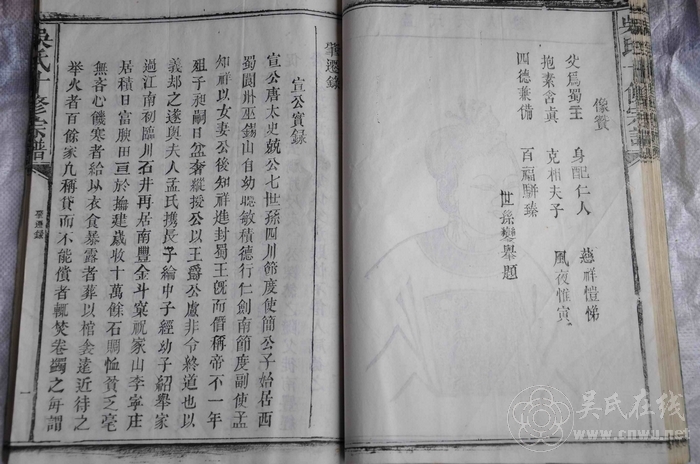 像贊
父為蜀主 身配仁人 慈祥愷悌
抱素含真 克相夫子 夙夜惟寅
四德兼備 百福駢臻
世孫變舉題
吳氏十修宗譜
肇遷錄
肇遷錄
宣公實錄
宣公唐太史兢公七世孫四川節度使簡公子始居西
蜀閬州巫錫山自幼聰敏積德行仁劍南節度副使孟
知祥以女妻公後知祥進封蜀王旣而僭稱帝不一年
殂子昶嗣日益奢縱授公以王爵公慮非令終道也以
義郄之遂與夫人孟氏攜長子綸中子經幼子紹舉家
過江南初臨川石井再居南豐金斗窠祝家山李寧庄
居積日富腴田亘於撫建歲收十萬餘石賙恤貧乏毫
無吝心饑寒者給以衣食暴露者葬以棺衾遠近待之
舉火者百餘家凡稱貸而不能償者輒焚卷蠲之每謂
一
吳氏在线
www.cnwu.net